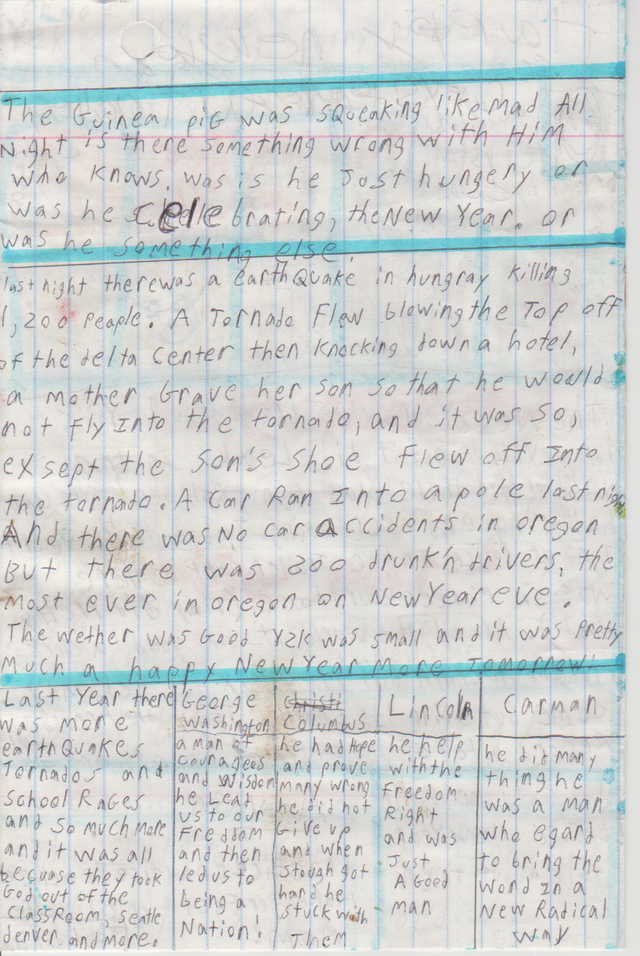 The Guinea pig was squeaking like mad All
Night is there something wrong with Him
who knows, was is he Just hungery or
was he celebrating, the New Year. or
was he something else.
last night there was a earthQuake in hungray killing
1,200 people. A Tornado Flew blowing the Top off
of the delta center then knocking down a hotel,
a mother Grave her son so that he would
not fly Into the tornado, and it was so,
exsept the Son's Shoe Flew off Into
the tornado. A Car Ran Into a pole last night
And there was No car accidents in oregon
But there was 200 drunk'n drivers, the
most ever in oregon on New Year eve.
The wether was Good Y2K was small and it was Pretty
Much a happy New Year More Tomorrow!
Last Year there
was more
earthQuakes
Tornados and
School Rages
and so much more
and it was all
becuase they took
God out of the
ClassRoom, seatle
denver, and more.
George
Washington
a man of
Courageos
and wisdom
he Lead
us to our
Freddom
and then
led us to
being a
Nation!
Christi
Columbus
he had hope
and prove
many wrong
he did not
Give up
and when
stough got
hard he
stuck with
Them
Lincoln
he help
with the
Freedom
Right
and was
Just
A Good
man
Carman
he did many
thing he
was a man
who egard
to bring the
word In a
New Radical
way